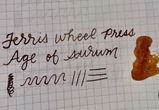 Ferris wheel press
Age of surum